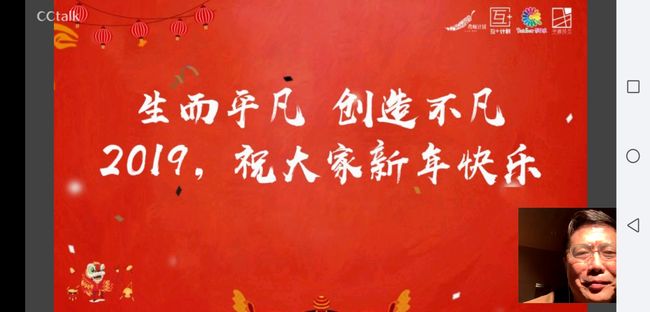 CCtalk
互+
互+计划
生而平凡 创造不凡
2019，祝大家新年快乐